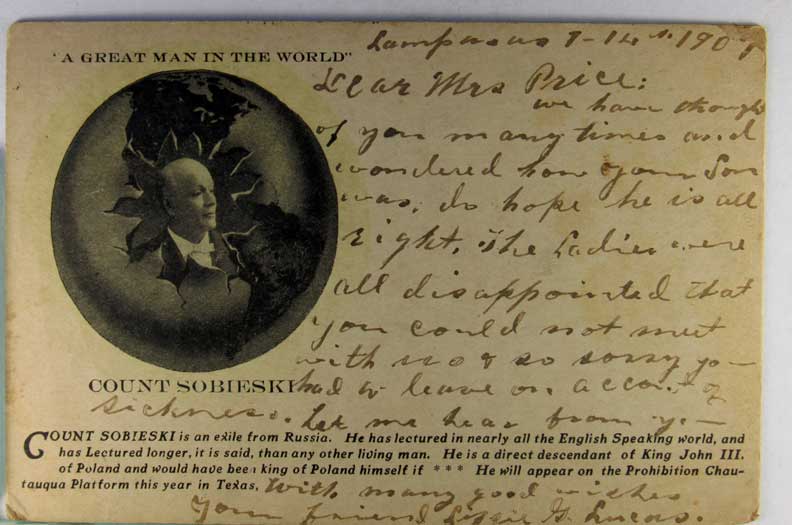 "A GREAT MAN IN THE WORLD"
Lampasas 7-14th 190
Dear Mrs Price:
we have thought
of you many times and
wondered how your Son
was, do hope he is all
right, The Ladies were
all disappointed that
you could not meet
with us & so sorry yo
had to leave on account of
sickness. Let me hear from yo
COUNT SOBIESKI
COUNT SOBIESKI is an exile from Russia. He has lectured in nearly all the English Speaking world, and
has Lectured longer, it is said, than any other living man. He is a direct descendant of King John III.
of Poland and would have been king of Poland himself if * * * He will appear on the Prohibition Chau-
tauqua Platform this year in Texas.
With many good wishes
Your friend Lizzie G. Lucas.